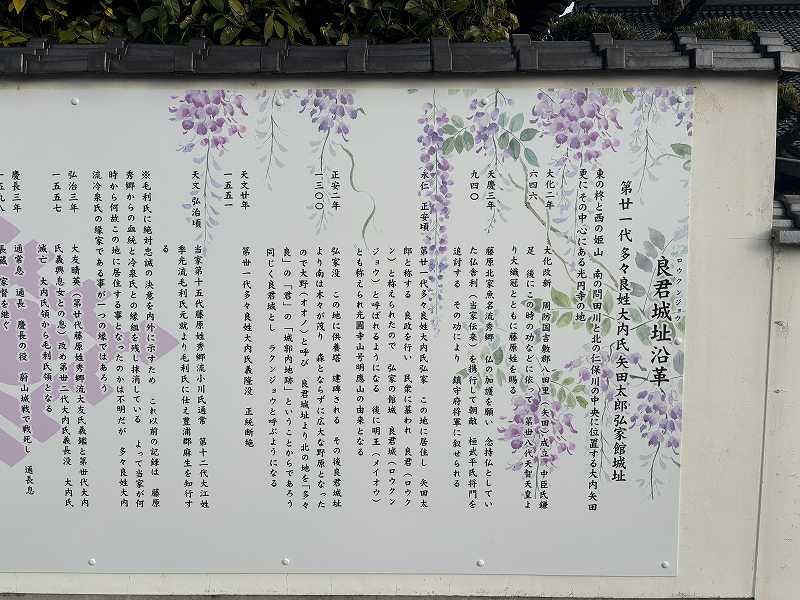 良君城址沿革
ロウクンジョウ
第廿一代 多々良姓大内氏矢田太郎弘家館城址
東の柊と西の姫山 南の問田川と北の仁保川の中央に位置する大内矢田
更にその中心にある光円寺の地
大化二年 大化改新 周防国吉敷郡八田里（矢田）成立 中臣氏鎌
六四六 足 後にこの時の功などに依って 第廿八代天智天皇よ
り大織冠とともに藤原姓を賜る
天慶三年 藤原北家魚名流秀郷 仏の加護を願い 念持仏としてい
九四〇 た仏舎利（当家伝来）を携行して朝敵 桓武平氏将門を
追討する その功により 鎮守府将軍に叙せられる
永仁 正安頃 第廿一代多々良姓大内氏弘家 この地に居住し 矢田太
郎と称する 良政を行い 民衆に慕われ 良君（ロウク
ン）と称えられたので 弘家の館城 良君城（ロウクン
ジョウ）と呼ばれるようになる 後に明王（メイオウ）
とも称えられ光圓寺山号明應山の由来となる
正安二年 弘家没 この地に供養塔 建碑される その後良君城址
一三〇〇 より南は木々が茂り 森とならずに広大な野原となった
ので大野（オオノ）と呼び 良君城址より北の地を「多々
良」の「君」の「城郭内地跡」ということからであろう
同じく良君城とし ラクンジョウと呼ぶようになる
天文廿年 第廿一代多々良姓大内氏義隆没 正統断絶
一五五一
天文 弘治頃 当家第十五代藤原姓秀郷流小川氏通常 第十二代大江姓
季光流毛利氏元就より毛利氏に仕え豊浦郡麻生を知行す
る
※毛利氏に絶対忠誠の決意を内外に示すため これ以前の記録は 藤原
秀郷からの血統と冷泉氏との縁組を残し抹消している よって当家が何
時から何故この地に居住する事となったのかは不明だが 多々良姓大内
流冷泉氏の縁家である事が一つの縁ではあろう
弘治三年 大友晴英（第廿代藤原姓秀郷流大友氏義鑑と第廿代大内
一五五七 氏義興息女との息）改め第廿二代大内氏義長没 大内氏
滅亡 大内氏領から毛利氏領となる
慶長三年 通常息 通長 慶長の役 蔚山城戦で戦死し 通長息
一五九八 長蔵 家督を継ぐ